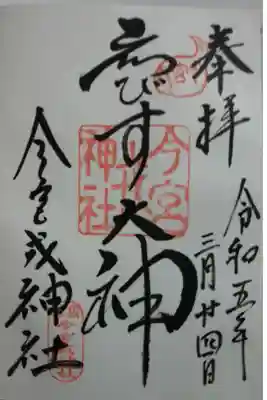 奉拝
令和五年
三月廿四日
ゑびす大神
今宮戎神社
今宮
戎
神社